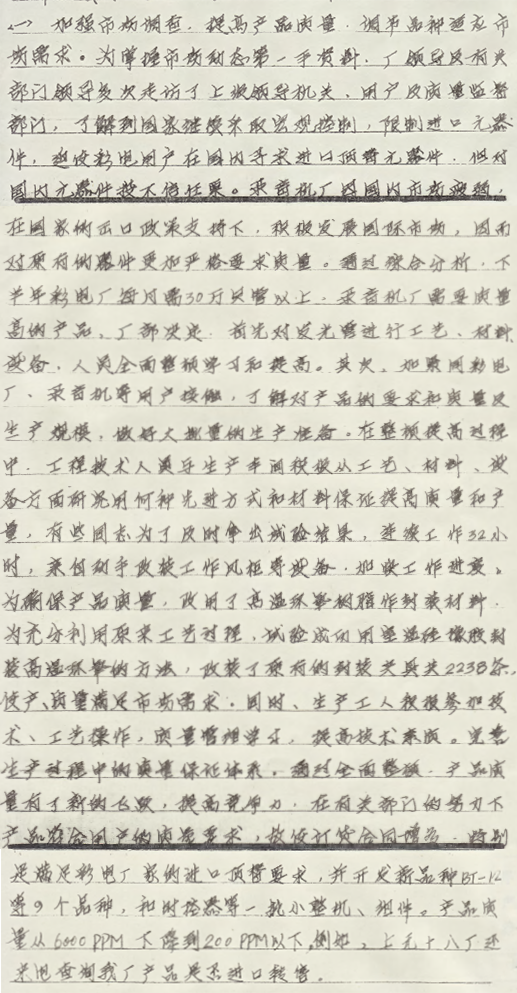 (一) 加强市场调查，提高产品质量，调节品种适应市
场需求。为掌握市场动态第一手资料，厂领导及有关
部门领导多次走访了上级领导机关、用户及质量监督
部门，了解到国家继续采取宏观控制，限制进口元器
件，迫使彩电用户在国内寻求进口顶替元器件，但对
国内元器件
在国家的出口政策支持下，积极发展国际市场，因而
对原有的器件更加严格要求质量。通过综合分析，下
半年彩电厂每月需30万只管以上，录音机厂需要质量
高的产品。厂部决定，首先对发光管进行工艺、材料
设备、人员全面整顿学习和提高。其次，加紧同彩电
厂、录音机等用户接触，了解对产品的要求和质量及
生产规模，做好大批量的生产准备。在整顿提高过程
中，工程技术人员与生产车间积极从工艺、材料、设
备方面研究用何种先进方式和材料保证提高质量和产
量，有些同志为了及时拿出试验结果，连续工作32小
时，亲自动手改装工作风柜等设备，加快工作进度。
为确保产品质量，改用了高温环氧树脂作封装材料，
为充分利用原来工艺过程，试验成功用室温硅橡胶封
装高温环氧的方法，改装了原有的封装夹具共2238条，
使产、质量满足市场需求。同时、生产工人积极参加技
术、工艺操作，质量管理学习，提高技术素质。完善
生产过程中的质量保证体系。通过全面整顿，产品质
量有了新的飞跃，提高竞争力，在有关部门的努力下
产品符合用户的质量要求，故使订货合同增多，特别
是满足彩电厂家的进口顶替要求，并开发新品种BT-12
等9个品种，和时控器等一批小整机、组件。产品质
量从6000PPM下降到200PPM以下，例如，上无十八厂还
来电查询我厂产品是否进口转管。